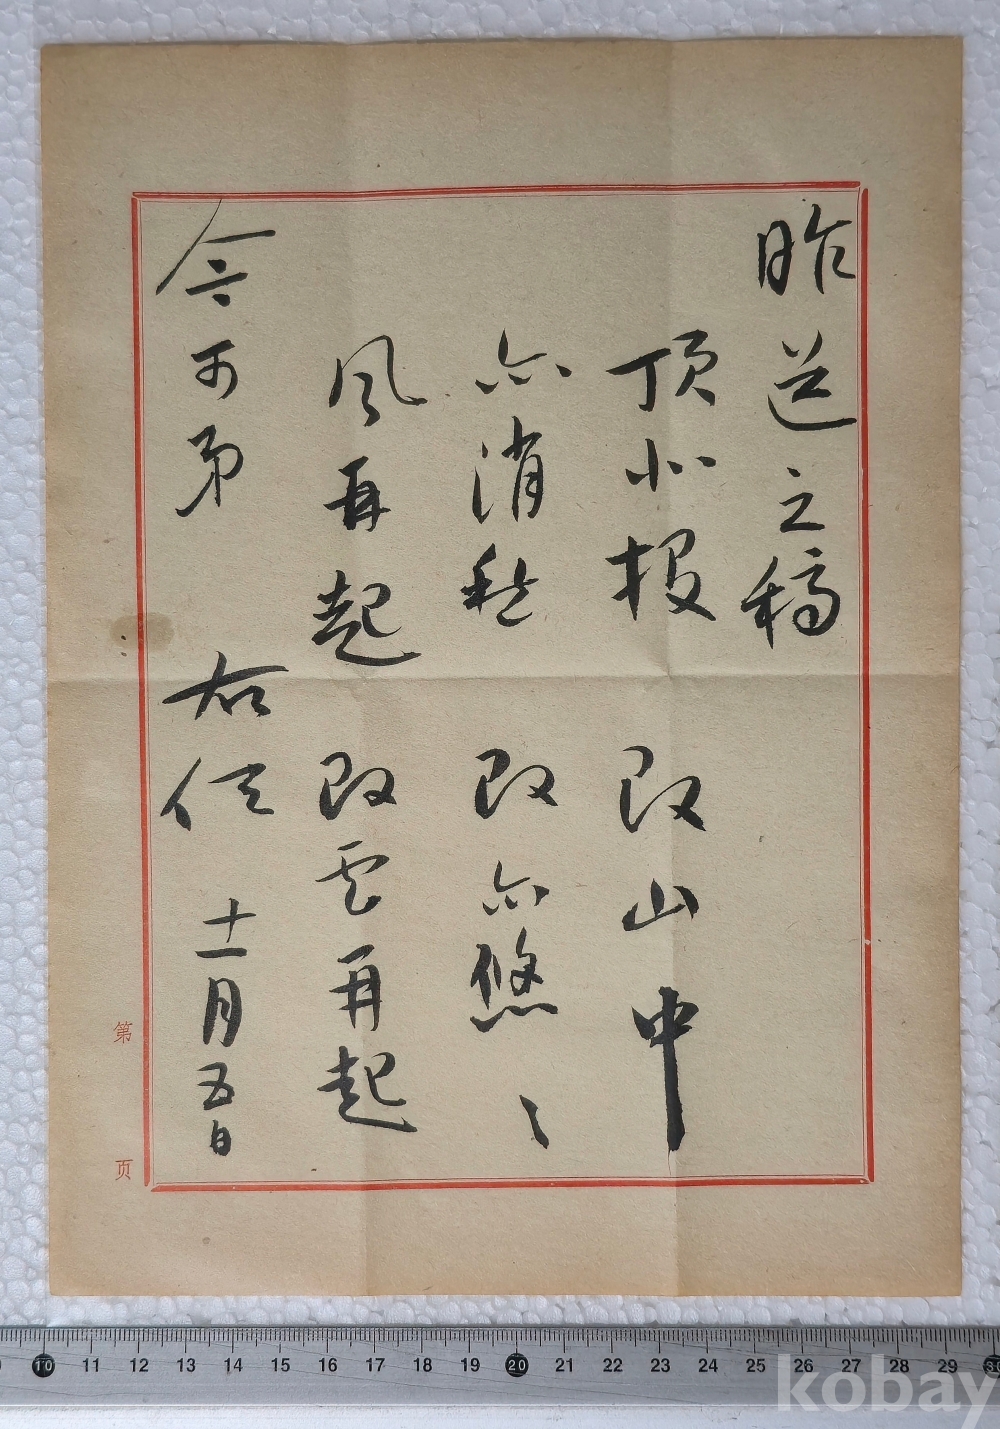 昨送之稿
顶 改山中
亦消愁 改亦悠々
风再起 改云再起
令可弟 右任 十一月五日
第 页
10 11 12 13 14 15 16 17 18 19 20 21 22 23 24 25 26 27 28 29 30
kobay